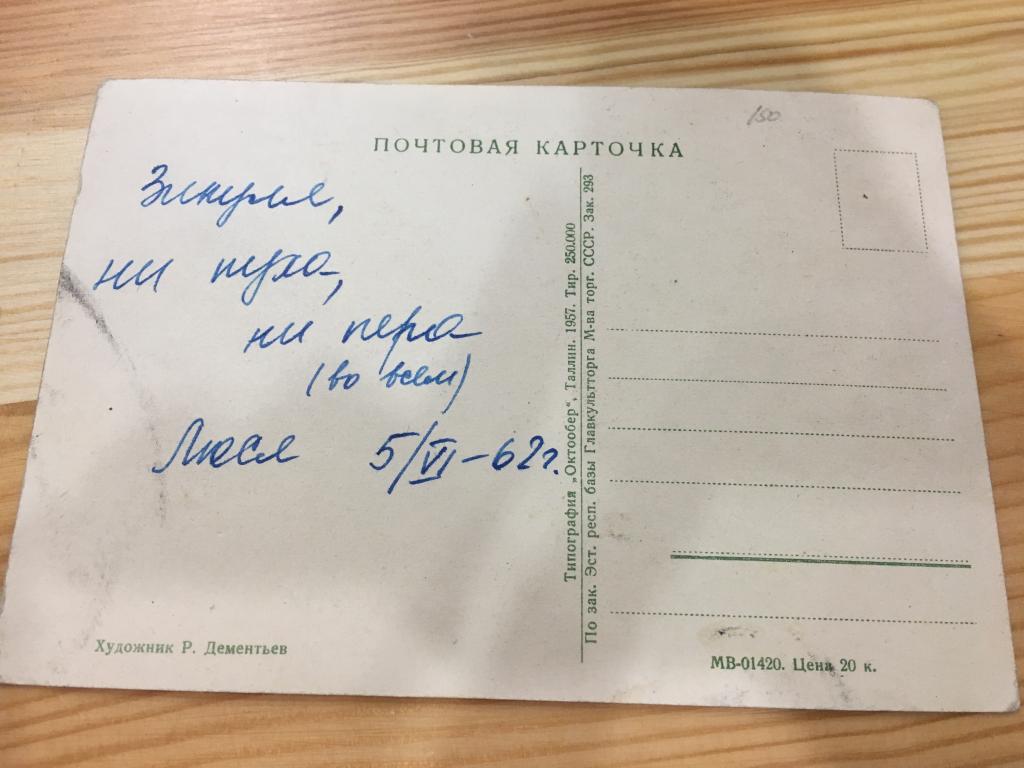 150
ПОЧТОВАЯ КАРТОЧКА
Зикуля,
ни пуха,
ни пера
(во всем)
Люся 5/VI-62г.
Художник Р. Дементьев
Типография „Октообер“, Таллин. 1957. Тир. 250.000
По зак. Эст. респ. базы Главкультторга М-ва торг. СССР. Зак. 293
МВ-01420. Цена 20 к.